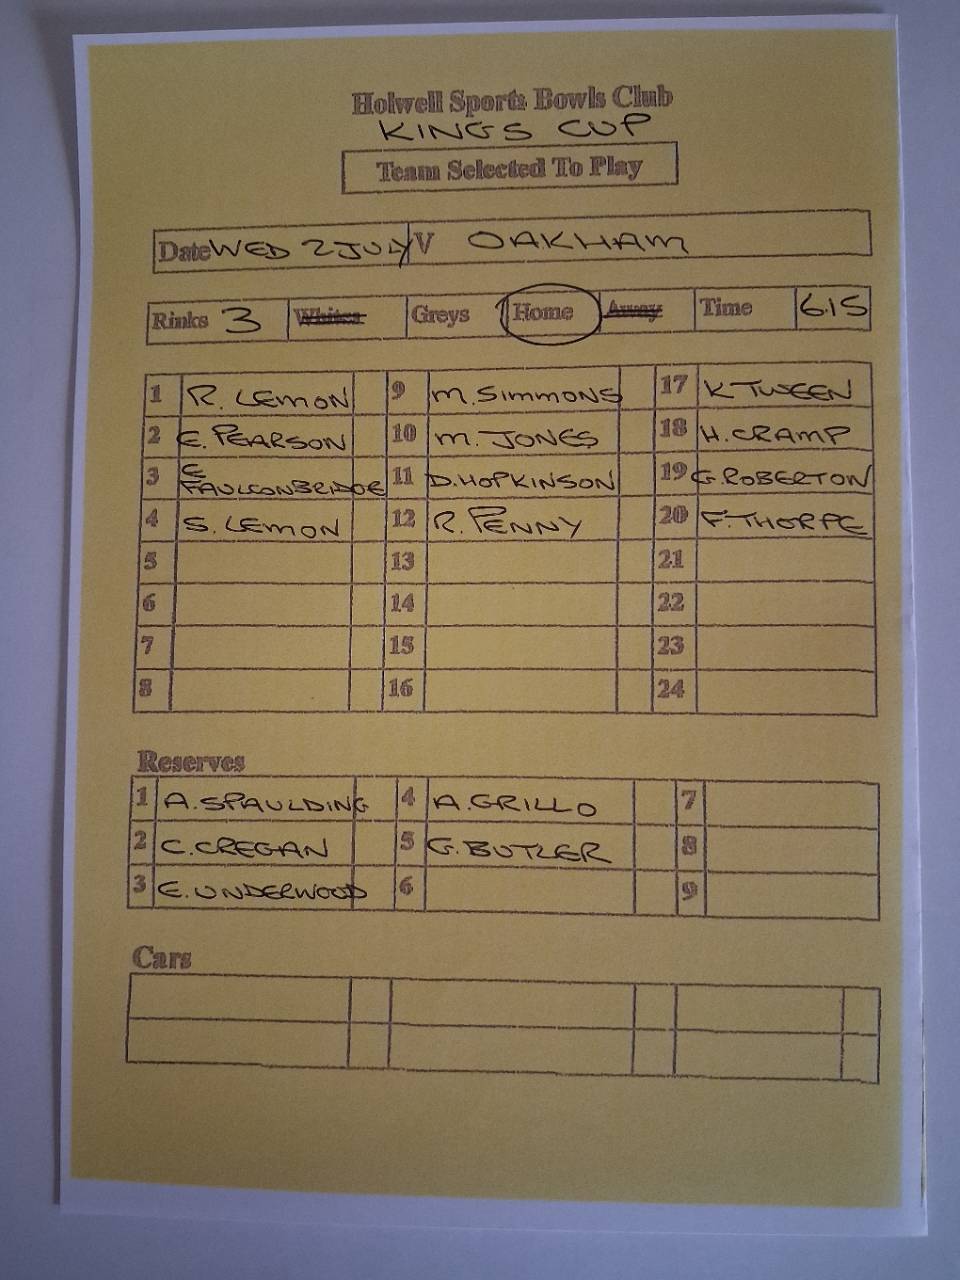 Holwell Sports Bowls Club
KINGS CUP
Team Selected To Play
Date WED 2 JULY V OAKHAM
Rinks 3 Whites Greys Home Away Time 6.15
1 R. LEMON 9 M. SIMMONS 17 K TWEEN
2 E. PEARSON 10 M. JONES 18 H. CRAMP
3 E FAULCONBRIDGE 11 D. HOPKINSON 19 G. ROBERTON
4 S. LEMON 12 R. PENNY 20 F. THORPE
5 13 21
6 14 22
7 15 23
8 16 24
Reserves
1 A. SPAULDING 4 A. GRILLO 7
2 C. CREGAN 5 G. BUTLER 8
3 E. UNDERWOOD 6 9
Cars